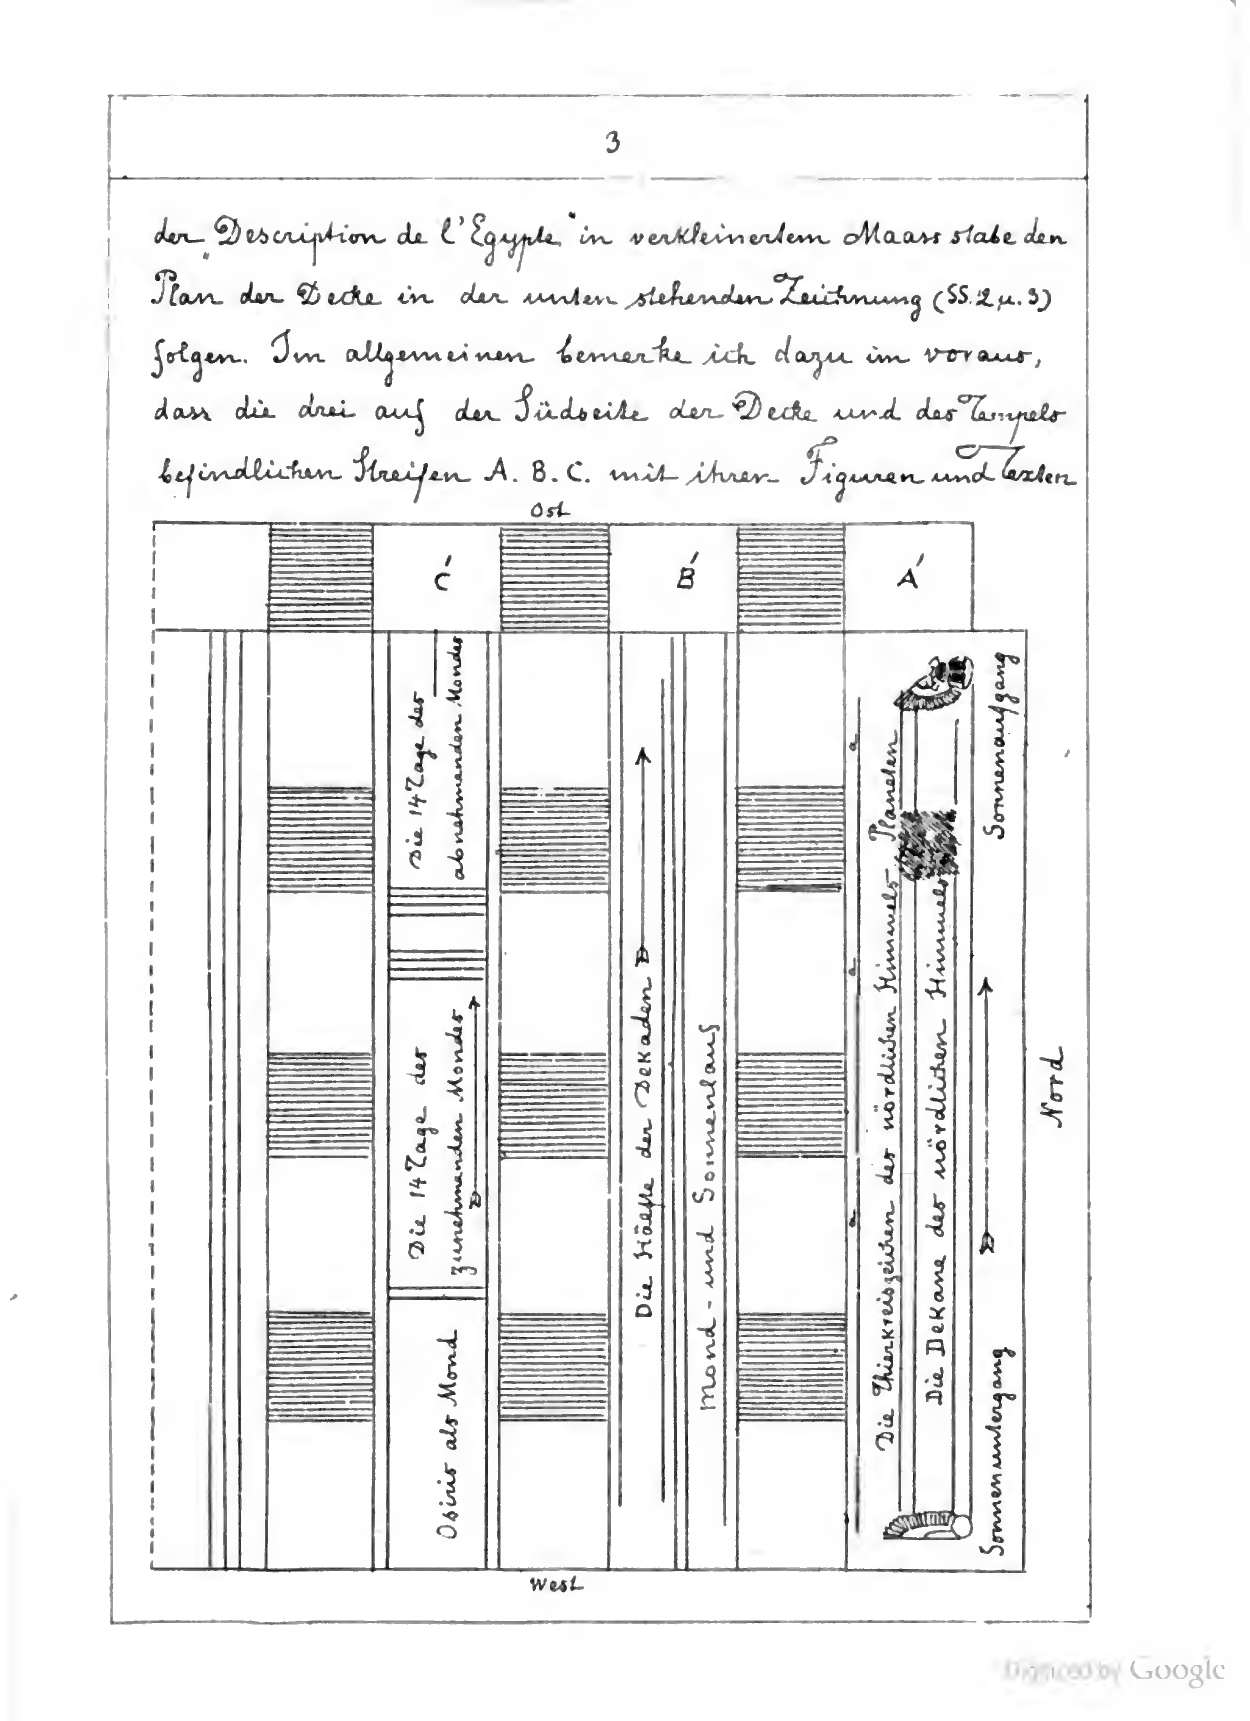 3
der „Description de l'Egypte" in verkleinertem Maassstabe den
Plan der Decke in der unten stehenden Zeichnung (SS. 2 u. 3)
folgen. Im allgemeinen bemerke ich dazu im voraus,
dass die drei auf der Südseite der Decke und des Tempels
befindlichen Streifen A. B. C. mit ihren Figuren und Texten
Ost
C' B' A'
Die 14 Tage des
abnehmenden Mondes
Die 14 Tage des
zunehmenden Mondes
Osiris als Mond
Die Häelfte der Dekaden
Mond- und Sonnenlauf
a
a
a
Die Thierkreiszeichen des nördlichen Himmels Planeten
Die Dekane des nördlichen Himmels
Sonnenaufgang
Sonnenuntergang
Nord
West
Digitized by Google